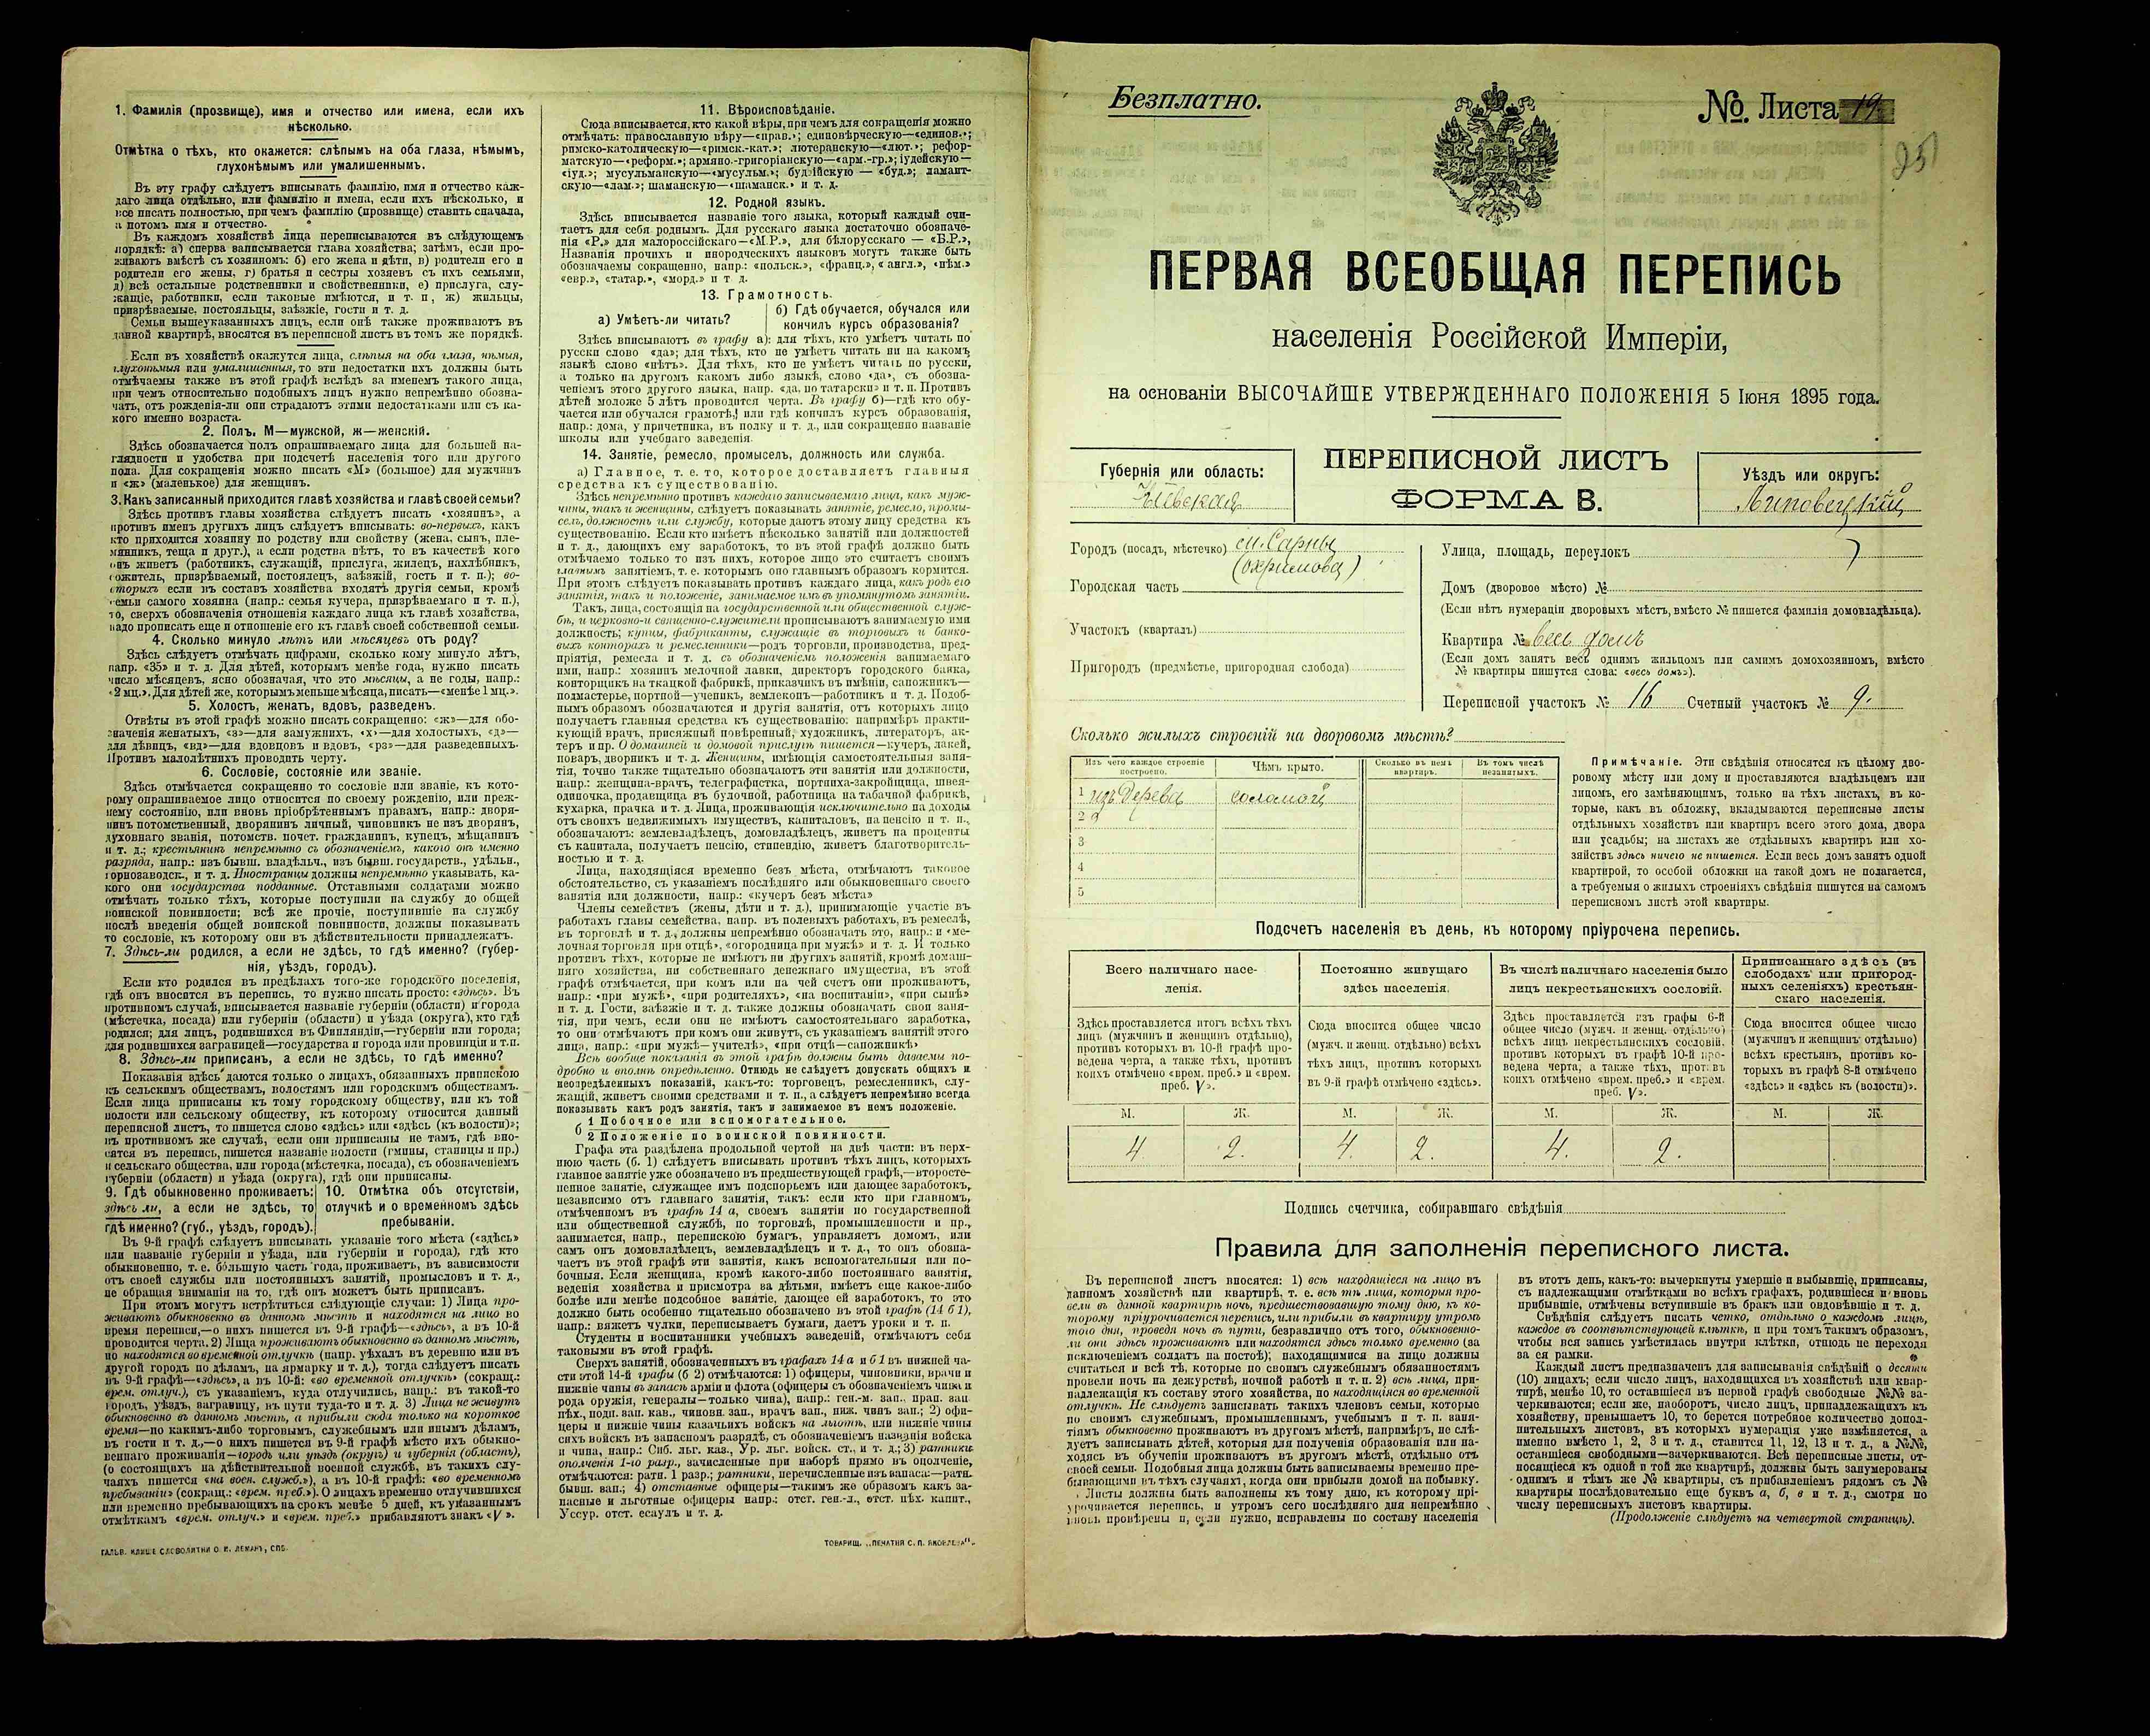 1. Фамилія (прозвище), имя и отчество или имена, если ихъ
нѣсколько.
Отмѣтка о тѣхъ, кто окажется: слѣпымъ на оба глаза, нѣмымъ,
глухонѣмымъ или умалишеннымъ.
Въ эту графу слѣдуетъ вписывать фамилію, имя и отчество каж-
даго лица отдѣльно, или фамилію и имена, если ихъ нѣсколько, и
все писать полностью, при чемъ фамилію (прозвище) ставить сначала,
а потомъ имя и отчество.
Въ каждомъ хозяйствѣ лица переписываются въ слѣдующемъ
порядкѣ: а) сперва записывается глава хозяйства; затѣмъ, если про-
живаютъ вмѣстѣ съ хозяиномъ: б) его жена и дѣти, в) родители его и
родители его жены, г) братья и сестры хозяевъ съ ихъ семьями,
д) всѣ остальные родственники и свойственники, е) прислуга, слу-
жащіе, работники, если таковые имѣются, и т. п, ж) жильцы,
призрѣваемые, постояльцы, заѣзжіе, гости и т. д.
Семьи вышеуказанныхъ лицъ, если онѣ также проживаютъ въ
данной квартирѣ, вносятся въ переписной листъ въ томъ же порядкѣ.
Если въ хозяйствѣ окажутся лица, слѣпыя на оба глаза, нѣмыя,
глухонѣмыя или умалишенныя, то эти недостатки ихъ должны быть
отмѣчаемы также въ этой графѣ вслѣдъ за именемъ такого лица,
при чемъ относительно подобныхъ лицъ нужно непремѣнно обозна-
чать, отъ рожденія-ли они страдаютъ этими недостатками или съ ка-
кого именно возраста.
2. Полъ, М—мужской, ж—женскій.
Здѣсь обозначается полъ опрашиваемаго лица для большей на-
глядности и удобства при подсчетѣ населенія того или другого
пола. Для сокращенія можно писать «М» (большое) для мужчинъ
и «ж» (маленькое) для женщинъ.
3. Какъ записанный приходится главѣ хозяйства и главѣ своей семьи?
Здѣсь противъ главы хозяйства слѣдуетъ писать «хозяинъ», а
противъ именъ другихъ лицъ слѣдуетъ вписывать: во-первыхъ, какъ
кто приходится хозяину по родству или свойству (жена, сынъ, пле-
мянникъ, теща и друг.), а если родства нѣтъ, то въ качествѣ кого
онъ живетъ (работникъ, служащій, прислуга, жилецъ, нахлѣбникъ,
сожитель, призрѣваемый, постоялецъ, заѣзжій, гость и т. п.); во-
вторыхъ если въ составъ хозяйства входятъ другія семьи, кромѣ
семьи самого хозяина (напр.: семья кучера, призрѣваемаго и т. п.),
то, сверхъ обозначенія отношенія каждаго лица къ главѣ хозяйства,
надо прописать еще и отношеніе его къ главѣ своей собственной семьи.
4. Сколько минуло лѣтъ или мѣсяцевъ отъ роду?
Здѣсь слѣдуетъ отмѣчать цифрами, сколько кому минуло лѣтъ,
напр. «35» и т. д. Для дѣтей, которымъ менѣе года, нужно писать
число мѣсяцевъ, ясно обозначая, что это мѣсяцы, а не годы, напр.:
«2 мц.». Для дѣтей же, которымъ меньше мѣсяца, писать—«менѣе 1 мц.».
5. Холостъ, женатъ, вдовъ, разведенъ.
Отвѣты въ этой графѣ можно писать сокращенно: «ж»—для обо-
значенія женатыхъ, «з»—для замужнихъ, «х»—для холостыхъ, «д»—
для дѣвицъ, «вд»—для вдовцовъ и вдовъ, «рз»—для разведенныхъ.
Противъ малолѣтнихъ проводить черту.
6. Сословіе, состояніе или званіе.
Здѣсь отмѣчаться сокращенно то сословіе или званіе, къ кото-
рому опрашиваемое лицо относится по своему рожденію, или преж-
нему состоянію, или вновь пріобрѣтеннымъ правамъ, напр.: дворя-
нинъ потомственный, дворянинъ личный, чиновникъ не изъ дворянъ,
духовнаго званія, потомств. почет. гражданинъ, купецъ, мѣщанинъ
и т. д.; крестьянинъ непремѣнно съ обозначеніемъ, какого онъ именно
разряда, напр.: изъ бывш. владѣльч., изъ бывш. государств., удѣльн.,
горнозаводск., и т. д. Иностранцы должны непремѣнно указывать, ка-
кого они государства подданные. Отставными солдатами можно
отмѣчать только тѣхъ, которые поступили на службу до общей
воинской повинности; всѣ же прочіе, поступившіе на службу
послѣ введенія общей воинской повинности, должны показывать
то сословіе, къ которому они въ дѣйствительности принадлежатъ.
7. Здѣсь-ли родился, а если не здѣсь, то гдѣ именно? (губер-
нія, уѣздъ, городъ).
Если кто родился въ предѣлахъ того-же городского поселенія,
гдѣ онъ вносится въ перепись, то нужно писать просто: «здѣсь». Въ
противномъ случаѣ, вписывается названіе губерніи (области) и города
(мѣстечка, посада) или губерніи (области) и уѣзда (округа), кто гдѣ
родился; для лицъ, родившихся въ Финляндіи,—губерніи или города;
для родившихся заграницей—государства и города или провинціи и т.п.
8. Здѣсь-ли приписанъ, а если не здѣсь, то гдѣ именно?
Показанія здѣсь даются только о лицахъ, обязанныхъ припискою
къ сельскимъ обществамъ, волостямъ или городскимъ обществамъ.
Если лица приписаны къ тому городскому обществу, или къ той
волости или сельскому обществу, къ которому относится данный
переписной листъ, то пишется слово «здѣсь» или «здѣсь (къ волости)»;
въ противномъ же случаѣ, если они приписаны не тамъ, гдѣ вно-
сятся въ перепись, пишется названіе волости (гмины, станицы и пр.)
и сельскаго общества, или города (мѣстечка, посада), съ обозначеніемъ
губерніи (области) и уѣзда (округа), гдѣ они приписаны.
9. Гдѣ обыкновенно проживаетъ:
здѣсь ли, а если не здѣсь, то
гдѣ именно? (губ., уѣздъ, городъ).
10. Отмѣтка объ отсутствіи,
отлучкѣ и о временномъ здѣсь
пребываніи.
Въ 9-й графѣ слѣдуетъ вписывать указаніе того мѣста («здѣсь»
или названіе губерніи и уѣзда, или губерніи и города), гдѣ кто
обыкновенно, т. е. бо́льшую часть года, проживаетъ, въ зависимости
отъ своей службы или постоянныхъ занятій, промысловъ и т. д.,
не обращая вниманія на то, гдѣ онъ можетъ быть приписанъ.
При этомъ могутъ встрѣтиться слѣдующіе случаи: 1) Лица про-
живаютъ обыкновенно въ данномъ мѣстѣ и находятся на лицо во
время переписи,—о нихъ пишется въ 9-й графѣ—«здѣсь», а въ 10-й
проводится черта. 2) Лица проживаютъ обыкновенно въ данномъ мѣстѣ,
но находятся во временной отлучкѣ (напр. уѣхалъ въ деревню или въ
другой городъ по дѣламъ, на ярмарку и т. д.), тогда слѣдуетъ писать
въ 9-й графѣ—«здѣсь», а въ 10-й: «во временной отлучкѣ» (сокращ.:
врем. отлуч.), съ указаніемъ, куда отлучились, напр.: въ такой-то
городъ, уѣздъ, заграницу, въ пути туда-то и т. д. 3) Лица не живутъ
обыкновенно въ данномъ мѣстѣ, а прибыли сюда только на короткое
время—по какимъ-либо торговымъ, служебнымъ или инымъ дѣламъ,
въ гости и т. д.,—о нихъ пишется въ 9-й графѣ мѣсто ихъ обыкно-
веннаго проживанія—городъ или уѣздъ (округъ) и губернія (область),
(о состоящихъ на дѣйствительной военной службѣ, въ такихъ слу-
чаяхъ пишется «на воен. служб.»), а въ 10-й графѣ: «во временномъ
пребываніи» (сокращ.: «врем. преб.»). О лицахъ временно отлучившихся
или временно пребывающихъ на срокъ менѣе 5 дней, къ указаннымъ
отмѣткамъ «врем. отлуч.» и «врем. преб.» прибавляютъ знакъ «V».
ГАЛЬВ. КЛИШЕ СЛОВОЛИТНИ О. И. ЛЕМАНЪ, СПБ.
11. Вѣроисповѣданіе.
Сюда вписывается, кто какой вѣры, при чемъ для сокращенія можно
отмѣчать: православную вѣру—«прав.»; единовѣрческую—«единов.»;
римско-католическую—«римск.-кат.»; лютеранскую—«лют.»; рефор-
матскую—«реформ.»; армяно.-григоріанскую—«арм.-гр.»; іудейскую—
«іуд.»; мусульманскую—«мусульм.»; буддійскую — «буд.»; ламаит-
скую—«лам.»; шаманскую—«шаманск.» и т. д.
12. Родной языкъ.
Здѣсь вписывается названіе того языка, который каждый счи-
таетъ для себя роднымъ. Для русскаго языка достаточно обозначе-
нія «Р.» для малороссійскаго—«М.Р.», для бѣлорусскаго — «Б.Р.»,
Названія прочихъ и инородческихъ языковъ могутъ также быть
обозначаемы сокращенно, напр.: «польск.», «франц.», «англ.», «нѣм.»
«евр.», «татар.», «морд.» и т д.
13. Грамотность.
а) Умѣетъ-ли читать?
б) Гдѣ обучается, обучался или
кончилъ курсъ образованія?
Здѣсь вписываютъ въ графу а): для тѣхъ, кто умѣетъ читать по
русски слово «да»; для тѣхъ, кто не умѣетъ читать ни на какомъ
языкѣ слово «нѣтъ». Для тѣхъ, кто не умѣетъ читать по русски,
а только на другомъ какомъ либо языкѣ, слово «да», съ обозна-
ченіемъ этого другого языка, напр. «да, по татарски» и т. п. Противъ
дѣтей моложе 5 лѣтъ проводится черта. Въ графу б)—гдѣ кто обу-
чается или обучался грамотѣ, или гдѣ кончилъ курсъ образованія,
напр.: дома, у причетника, въ полку и т. д., или сокращенно названіе
школы или учебнаго заведенія.
14. Занятіе, ремесло, промыселъ, должность или служба.
а) Главное, т. е. то, которое доставляетъ главныя
средства къ существованію.
Здѣсь непремѣнно противъ каждаго записываемаго лица, какъ муж-
чины, такъ и женщины, слѣдуетъ показывать занятіе, ремесло, промы-
селъ, должность или службу, которые даютъ этому лицу средства къ
существованію. Если кто имѣетъ нѣсколько занятій или должностей
и т. д., дающихъ ему заработокъ, то въ этой графѣ должно быть
отмѣчаемо только то изъ нихъ, которое лицо это считаетъ своимъ
главнымъ занятіемъ, т. е. которымъ оно главнымъ образомъ кормится.
При этомъ слѣдуетъ показывать противъ каждаго лица, какъ родъ его
занятія, такъ и положеніе, занимаемое имъ въ упомянутомъ занятіи.
Такъ, лица, состоящія на государственной или общественной служ-
бѣ, и церковно-и священно-служители прописываютъ занимаемую ими
должность; купцы, фабриканты, служащіе въ торговыхъ и банко-
выхъ конторахъ и ремесленники—родъ торговли, производства, пред-
пріятія, ремесла и т. д. съ обозначеніемъ положенія занимаемаго
ими, напр.: хозяинъ мелочной лавки, директоръ городского банка,
конторщикъ на ткацкой фабрикѣ, приказчикъ въ имѣніи, сапожникъ—
подмастерье, портной—ученикъ, землекопъ—работникъ и т. д. Подоб-
нымъ образомъ обозначаются и другія занятія, отъ которыхъ лицо
получаетъ главныя средства къ существованію: напримѣръ практи-
кующій врачъ, присяжный повѣренный, художникъ, литераторъ, ак-
теръ и пр. О домашней и домовой прислугѣ пишется—кучеръ, лакей,
поваръ, дворникъ и т. д. Женщины, имѣющія самостоятельныя заня-
тія, точно также тщательно обозначаютъ эти занятія или должности,
напр.: женщина-врачъ, телеграфистка, портниха-закройщица, швея-
одиночка, продавщица въ булочной, работница на табачной фабрикѣ,
кухарка, прачка и т. д. Лица, проживающія исключительно на доходы
отъ своихъ недвижимыхъ имуществъ, капиталовъ, на пенсію и т. п.,
обозначаютъ: землевладѣлецъ, домовладѣлецъ, живетъ на проценты
съ капитала, получаетъ пенсію, стипендію, живетъ благотворитель-
ностью и т. д.
Лица, находящіяся временно безъ мѣста, отмѣчаютъ таковое
обстоятельство, съ указаніемъ послѣдняго или обыкновеннаго своего
занятія или должности, напр.: «кучеръ безъ мѣста»
Члены семействъ (жены, дѣти и т. д.), принимающіе участіе въ
работахъ главы семейства, напр. въ полевыхъ работахъ, въ ремеслѣ,
въ торговлѣ и т. д., должны непремѣнно обозначать это, напр.: «ме-
лочная торговля при отцѣ», «огородница при мужѣ» и т. д. И только
противъ тѣхъ, которые не имѣютъ ни другихъ занятій, кромѣ домаш-
няго хозяйства, ни собственнаго денежнаго имущества, въ этой
графѣ отмѣчается, при комъ или на чей счетъ они проживаютъ,
напр.: «при мужѣ», «при родителяхъ», «на воспитаніи», «при сынѣ»
и т. д. Гости, заѣзжіе и т. д. также должны обозначать свои заня-
тія, при чемъ, если они не имѣютъ самостоятельнаго заработка,
то они отмѣчаютъ при комъ они живутъ, съ указаніемъ занятій этого
лица, напр.: «при мужѣ—учителѣ», «при отцѣ—сапожникѣ»
Всѣ вообще показанія въ этой графѣ должны быть даваемы по-
дробно и вполнѣ опредѣленно. Отнюдь не слѣдуетъ допускать общихъ и
неопредѣленныхъ показаній, какъ-то: торговецъ, ремесленникъ, слу-
жащій, живетъ своими средствами и т. п., а слѣдуетъ непремѣнно всегда
показывать какъ родъ занятія, такъ и занимаемое въ немъ положеніе.
б
1 Побочное или вспомогательное.
2 Положеніе по воинской повинности.
Графа эта раздѣлена продольной чертой на двѣ части: въ верх-
нюю часть (б. 1) слѣдуетъ вписывать противъ тѣхъ лицъ, которыхъ
главное занятіе уже обозначено въ предшествующей графѣ,—второсте-
пенное занятіе, служащее имъ подспорьемъ или дающее заработокъ,
независимо отъ главнаго занятія, такъ: если кто при главномъ,
отмѣченномъ въ графѣ 14 а, своемъ занятіи по государственной
или общественной службѣ, по торговлѣ, промышленности и пр.,
занимается, напр., перепискою бумагъ, управляетъ домомъ, или
самъ онъ домовладѣлецъ, землевладѣлецъ и т. д., то онъ обозна-
чаетъ въ этой графѣ эти занятія, какъ вспомогательныя или по-
бочныя. Если женщина, кромѣ какого-либо постояннаго занятія,
веденія хозяйства и присмотра за дѣтьми, имѣетъ еще какое-либо
болѣе или менѣе подсобное занятіе, дающее ей заработокъ, то это
должно быть особенно тщательно обозначено въ этой графѣ (14 б 1),
напр.: вяжетъ чулки, переписываетъ бумаги, даетъ уроки и т. п.
Студенты и воспитанники учебныхъ заведеній, отмѣчаютъ себя
таковыми въ этой графѣ.
Сверхъ занятій, обозначенныхъ въ графахъ 14 а и б 1 въ нижней ча-
сти этой 14-й графы (б 2) отмѣчаются: 1) офицеры, чиновники, врачи и
нижніе чины въ запасѣ арміи и флота (офицеры съ обозначеніемъ чина и
рода оружія, генералы—только чина), напр.: ген.-м. зап., прап. зап.
пѣх., подп. зап. кав., чиновн. зап., врачъ зап., ниж. чинъ зап.; 2) офи-
церы и нижніе чины казачьихъ войскъ на льготѣ, или нижніе чины
сихъ войскъ въ запасномъ разрядѣ, съ обозначеніемъ названія войска
и чина, напр.: Сиб. льг. каз., Ур. льг. войск. ст., и т. д.; 3) ратники
ополченія 1-го разр., зачисленные при наборѣ прямо въ ополченіе,
отмѣчаются: ратн. 1 разр.; ратники, перечисленные изъ запаса:—ратн.
бывш. зап.; 4) отставные офицеры—такимъ же образомъ какъ за-
пасные и льготные офицеры напр.: отст. ген.-л., отст. пѣх. капит.,
Уссур. отст. есаулъ и т. д.
ТОВАРИЩ. „ПЕЧАТНЯ С. П. ЯКОВЛЕВА".
Безплатно.
№. Листа 19.
95
ПЕРВАЯ ВСЕОБЩАЯ ПЕРЕПИСЬ
населенія Россійской Имперіи,
на основаніи ВЫСОЧАЙШЕ УТВЕРЖДЕННАГО ПОЛОЖЕНІЯ 5 Іюня 1895 года.
Губернія или область:
Кіевская
ПЕРЕПИСНОЙ ЛИСТЪ
ФОРМА В.
Уѣздъ или округъ:
Липовецкій
Городъ (посадъ, мѣстечко) м. Сарны
(охримова)
Городская часть
Участокъ (кварталъ)
Пригородъ (предмѣстье, пригородная слобода)
Улица, площадь, переулокъ
Домъ (дворовое мѣсто) №
(Если нѣтъ нумераціи дворовыхъ мѣстъ, вмѣсто № пишется фамилія домовладѣльца).
Квартира № весь домъ
(Если домъ занятъ весь однимъ жильцомъ или самимъ домохозяиномъ, вмѣсто
№ квартиры пишутся слова: «весь домъ»).
Переписной участокъ № 16 Счетный участокъ № 9.
Сколько жилыхъ строеній на дворовомъ мѣстѣ?
Изъ чего каждое строеніе
построено.
Чѣмъ крыто.
Сколько въ немъ
квартиръ.
Въ томъ числѣ
незанятыхъ.
1 изъ дерева соломой
2
3
4
5
Примѣчаніе. Эти свѣдѣнія относятся къ цѣлому дво-
ровому мѣсту или дому и проставляются владѣльцемъ или
лицомъ, его замѣняющимъ, только на тѣхъ листахъ, въ ко-
торые, какъ въ обложку, вкладываются переписные листы
отдѣльныхъ хозяйствъ или квартиръ всего этого дома, двора
или усадьбы; на листахъ же отдѣльныхъ квартиръ или хо-
зяйствъ здѣсь ничего не пишется. Если весь домъ занятъ одной
квартирой, то особой обложки на такой домъ не полагается,
а требуемыя о жилыхъ строеніяхъ свѣдѣнія пишутся на самомъ
переписномъ листѣ этой квартиры.
Подсчетъ населенія въ день, къ которому пріурочена перепись.
Всего наличнаго насе-
ленія.
Постоянно живущаго
здѣсь населенія.
Въ числѣ наличнаго населенія было
лицъ некрестьянскихъ сословій.
Приписаннаго здѣсь (въ
слободахъ или пригород-
ныхъ селеніяхъ) крестьян-
скаго населенія.
Здѣсь проставляется итогъ всѣхъ тѣхъ
лицъ (мужчинъ и женщинъ отдѣльно),
противъ которыхъ въ 10-й графѣ про-
ведена черта, а также тѣхъ, противъ
коихъ отмѣчено «врем. преб.» и «врем.
преб. V».
Сюда вносится общее число
(мужч. и женщ. отдѣльно) всѣхъ
тѣхъ лицъ, противъ которыхъ
въ 9-й графѣ отмѣчено «здѣсь».
Здѣсь проставляется изъ графы 6-й
общее число (мужч. и женщ. отдѣльно)
всѣхъ лицъ некрестьянскихъ сословій,
противъ которыхъ въ графѣ 10-й про-
ведена черта, а также тѣхъ, противъ
коихъ отмѣчено «врем. преб.» и «врем.
преб. V».
Сюда вносится общее число
(мужчинъ и женщинъ отдѣльно)
всѣхъ крестьянъ, противъ ко-
торыхъ въ графѣ 8-й отмѣчено
«здѣсь» и «здѣсь къ (волости)».
М. Ж. М. Ж. М. Ж. М. Ж.
4 2. 4. 2. 4. 2.
Подпись счетчика, собиравшаго свѣдѣнія
Правила для заполненія переписного листа.
Въ переписной листъ вносятся: 1) всѣ находящіеся на лицо въ
данномъ хозяйствѣ или квартирѣ, т. е. всѣ тѣ лица, которыя про-
вели въ данной квартирѣ ночь, предшествовавшую тому дню, къ ко-
торому пріурочивается перепись, или прибыли въ квартиру утромъ
того дня, проведя ночь въ пути, безразлично отъ того, обыкновенно-
ли они здѣсь проживаютъ или находятся здѣсь только временно (за
исключеніемъ солдатъ на постоѣ); находящимися на лицо должны
считаться и всѣ тѣ, которые по своимъ служебнымъ обязанностямъ
провели ночь на дежурствѣ, ночной работѣ и т. п. 2) всѣ лица, при-
надлежащія къ составу этого хозяйства, но находящіяся во временной
отлучкѣ. Не слѣдуетъ записывать такихъ членовъ семьи, которые
по своимъ служебнымъ, промышленнымъ, учебнымъ и т. п. заня-
тіямъ обыкновенно проживаютъ въ другомъ мѣстѣ, напримѣръ, не слѣ-
дуетъ записывать дѣтей, которыя для полученія образованія или на-
ходясь въ обученіи проживаютъ въ другомъ мѣстѣ, отдѣльно отъ
своей семьи. Подобныя лица должны быть записываемы временно пре-
бывающими въ тѣхъ случаяхъ, когда они прибыли домой на побывку.
Листы должны быть заполнены къ тому дню, къ которому прі-
урочивается перепись, и утромъ сего послѣдняго дня непремѣнно
вновь провѣрены и, если нужно, исправлены по составу населенія
въ этотъ день, какъ-то: вычеркнуты умершіе и выбывшіе, приписаны,
съ надлежащими отмѣтками во всѣхъ графахъ, родившіеся и вновь
прибывшіе, отмѣчены вступившіе въ бракъ или овдовѣвшіе и т. д.
Свѣдѣнія слѣдуетъ писать четко, отдѣльно о каждомъ лицѣ,
каждое въ соотвѣтствующей клѣткѣ, и при томъ такимъ образомъ,
чтобы вся запись умѣстилась внутри клѣтки, отнюдь не переходя
за ея рамки.
Каждый листъ предназначенъ для записыванія свѣдѣній о десяти
(10) лицахъ; если число лицъ, находящихся въ хозяйствѣ или квар-
тирѣ, менѣе 10, то оставшіеся въ первой графѣ свободные №№ за-
черкиваются; если же, наоборотъ, число лицъ, принадлежащихъ къ
хозяйству, превышаетъ 10, то берется потребное количество допол-
нительныхъ листовъ, въ которыхъ нумерація уже измѣняется, а
именно вмѣсто 1, 2, 3 и т. д., ставится 11, 12, 13 и т. д., а №№,
оставшіеся свободными—зачеркиваются. Всѣ переписные листы, от-
носящіеся къ одной и той же квартирѣ, должны быть занумерованы
однимъ и тѣмъ же № квартиры, съ прибавленіемъ рядомъ съ №
квартиры послѣдовательно еще буквъ а, б, в и т. д., смотря по
числу переписныхъ листовъ квартиры.
(Продолженіе слѣдуетъ на четвертой страницѣ).